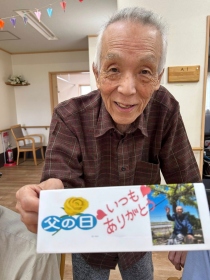 父の日
いつも
ありがとう